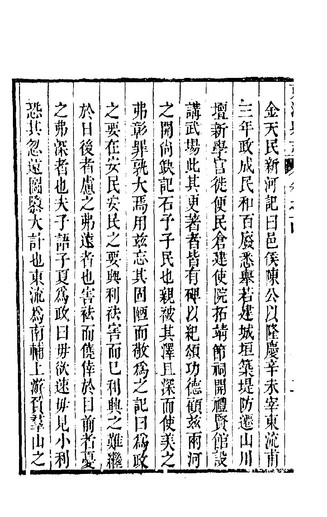 金天民新河記曰邑侯陳公以隆慶辛未宰東流甫
三年政成民和百廢悉舉若建城垣築堤防遷山川
壇新學官徙便民倉建使院拓靖節祠開禮賢館設
講武場此其更著者皆有碑以紀頌功德顧茲兩河
之開尚缺記石予子民也親被其澤且深而使美之
弗彰罪孰大焉用茲忘其固陋而敬爲之記曰爲政
之要在安民安民之要興利袪害而巳利興之難繼
於日後者慮之弗遠者也害袪而僥倖於目前者憂
之弗深者也夫子語子夏爲政曰毋欲速毋見小利
恐其忽遠圖隳大計也東流爲南輔上游質羣山之